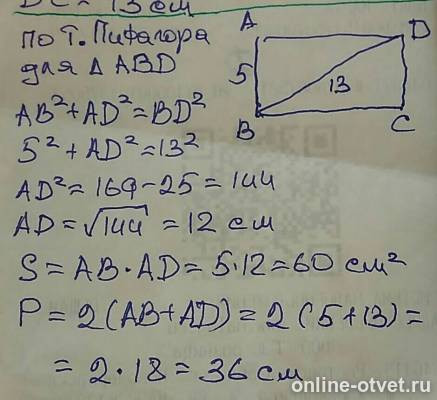 DC = 13 см
по т. Пифагора
для Δ ABD
AB²+AD²=BD²
5²+AD²=13²
AD²=169-25=144
AD=√144=12 см
S=AB·AD=5·12=60 см²
P=2(AB+AD)=2(5+13)=
=2·18=36 см
A
D
5
13
B
C
online-otvet.ru